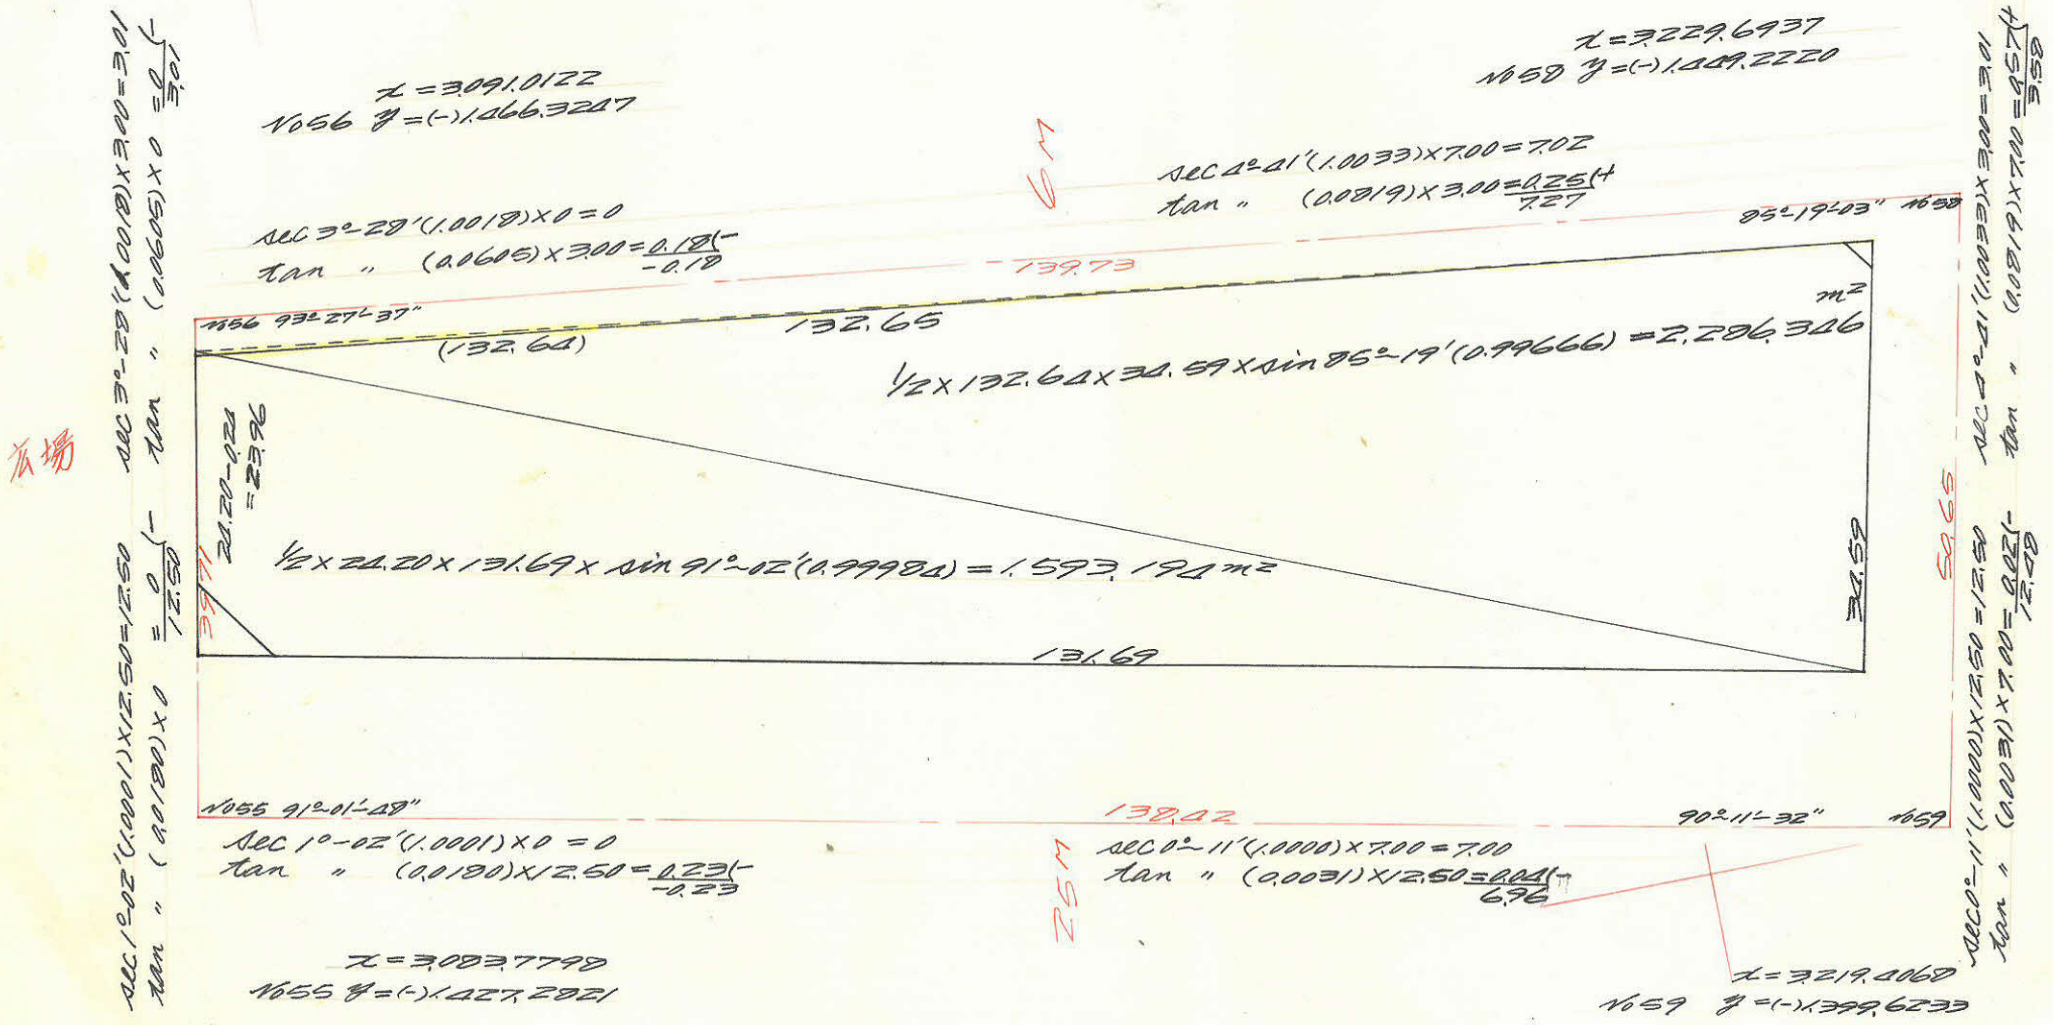 x=3,091.0122
No56 y=(-)1,466.3247
x=3,229.6937
No58 y=(-)1,449.2220
sec 3°-28'(1.0018)×3.00=3.01
tan 〃 (0.0605)×0 = 0 (-
3.01
sec 3°-28'(1.0018)×0=0
tan 〃 (0.0605)×3.00=0.18(-
-0.18
6M
sec 4°-41'(1.0033)×7.00=7.02
tan 〃 (0.0819)×3.00=0.25(+
7.27
sec 4°-41'(1.0033)×3.00=3.01
tan 〃 (0.0819)×7.00=0.57(+
3.58
85°-19'-03" No58
139.73
No56 93°-27'-37"
132.65
(132.64)
m²
1/2×132.64×34.59×sin85°-19'(0.99666)=2,286.346
広場
24.20-0.24
=23.96
39.71
1/2×24.20×131.69×sin91°-02'(0.99984)=1,593.194m²
34.59
50.65
131.69
sec 1°-02'(1.0001)×12.50=12.50
tan 〃 (0.0180)×0 = 0 (-
12.50
sec 0°-11'(1.0000)×12.50=12.50
tan 〃 (0.0031)×7.00=0.02(-
12.48
No55 91°-01'-48"
138.42
90°-11'-32" No59
sec 1°-02'(1.0001)×0=0
tan 〃 (0.0180)×12.50=0.23(-
-0.23
25M
sec 0°-11'(1.0000)×7.00=7.00
tan 〃 (0.0031)×12.50=0.04(-
6.96
x=3,083.7798
No55 y=(-)1,427.2821
x=3,219.4068
No59 y=(-)1,399.6233